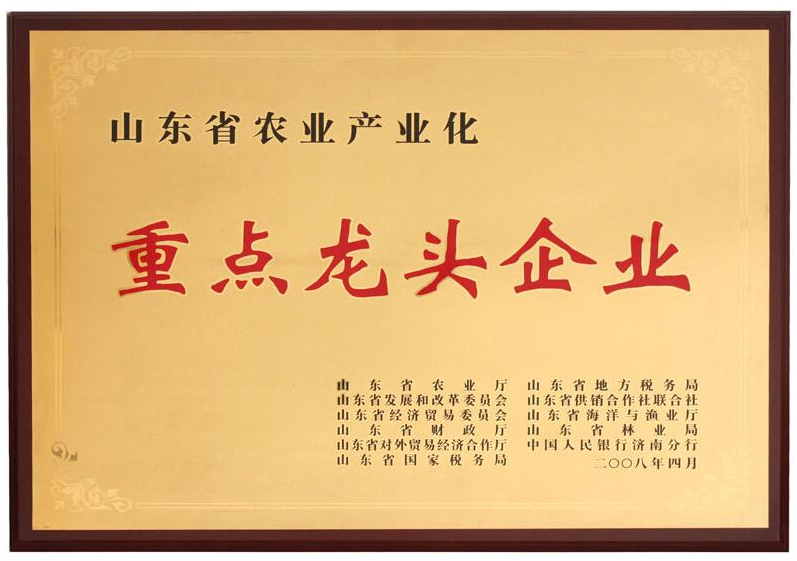 山东省农业产业化
重点龙头企业
山东省农业厅
山东省发展和改革委员会
山东省经济贸易委员会
山东省财政厅
山东省对外贸易经济合作厅
山东省国家税务局
山东省地方税务局
山东省供销合作社联合社
山东省海洋与渔业厅
山东省林业局
中国人民银行济南分行
二〇〇八年四月